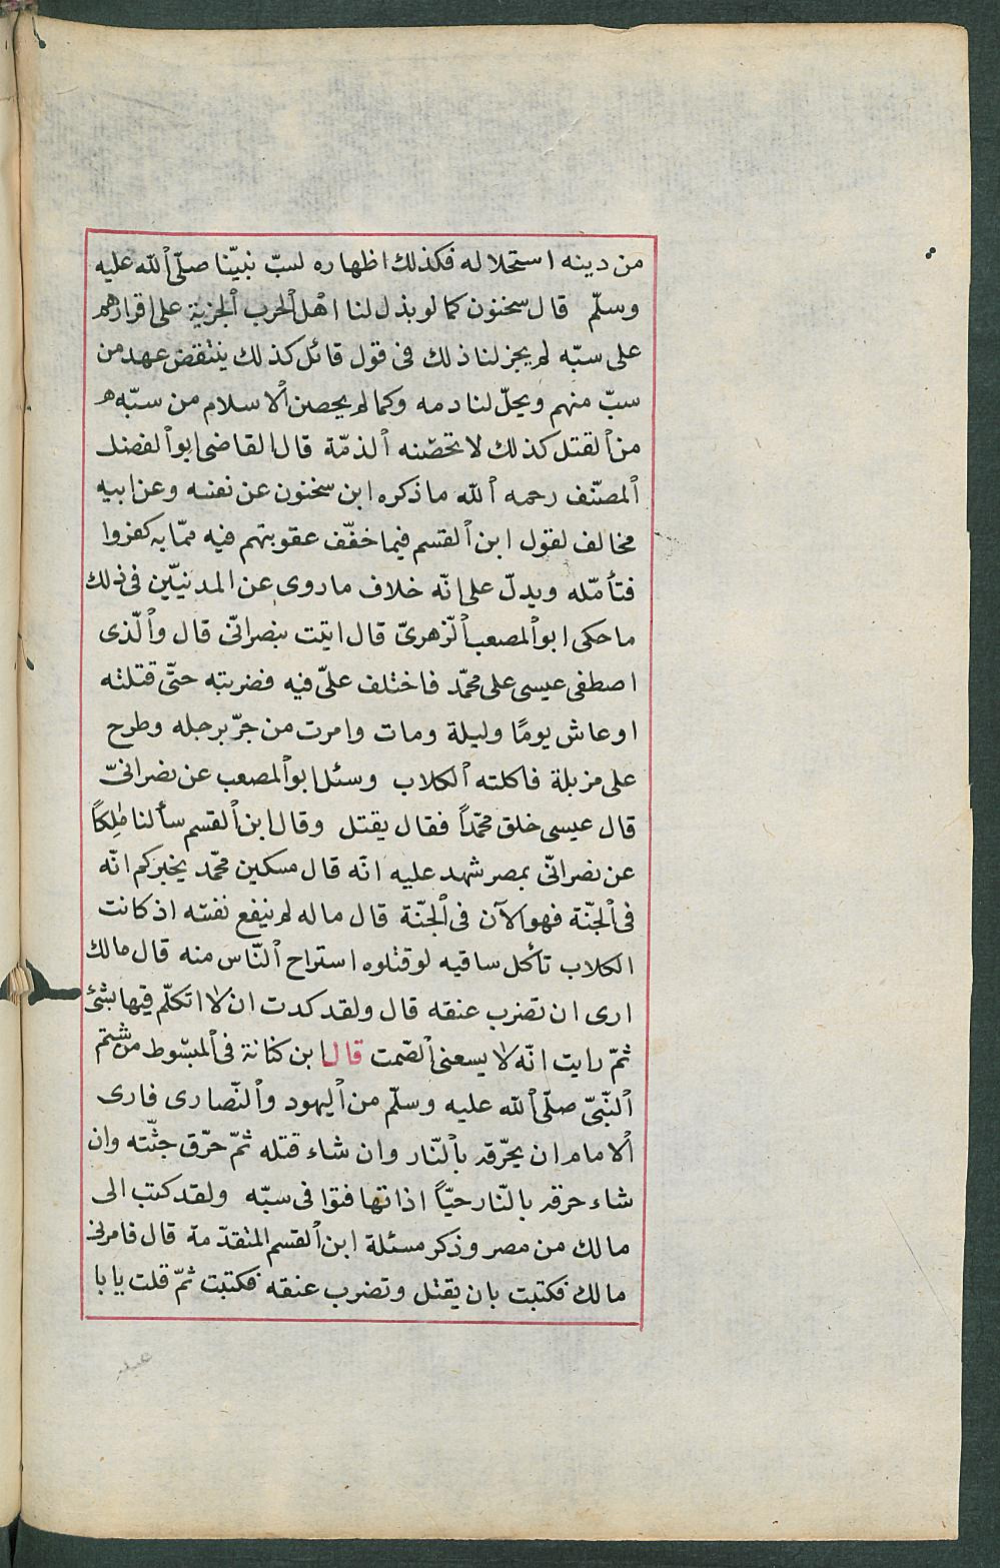 من دينه استحلاله فكذلك اظهاره لسبّ نبيّنا صلّى ٱللّه عليه
وسلّم قال سحنون كما لو بذل لنا اهل ٱلحرب ٱلجزية على اقرارهم
على سبّه لم يجز لنا ذلك فى قول قائل كذلك ينتقض عهد من
سبّ منهم ويحلّ لنا دمه وكما لم يحصن ٱلاسلام من سبّه
من ٱلقتل كذلك لا تحصّنه ٱلذمّة قال القاضى ابو ٱلفضل
ٱلمصنّف رحمه ٱللّه ما ذكره ابن سحنون عن نفسه وعن ابيه
مخالف لقول ابن ٱلقسم فيما خفّف عقوبتهم فيه ممّا به كفروا
فتأمّله ويدلّ على انّه خلاف ما روى عن المدنيّين فى ذلك
ما حكى ابو ٱلمصعب ٱلزهرىّ قال اتيت بنصرانىّ قال وٱلّذى
اصطفى عيسى على محمّد فاختلف علىّ فيه فضربته حتّى قتلته
او عاش يومًا وليلة ومات وامرت من جرّ برجله وطرح
على مزبلة فاكلته ٱلكلاب وسئل ابو ٱلمصعب عن نصرانىّ
قال عيسى خلق محمّداً فقال يقتل وقال ابن ٱلقسم سألنا مٰلِكاً
عن نصرانىّ بمصر شهد عليه انّه قال مسكين محمّد يخبركم انّه
فى ٱلجنّة فهو الآن فى ٱلجنّة قال ما له لم ينفع نفسه اذ كانت
الكلاب تأكل ساقيه لو قتلوه استراح ٱلنّاس منه قال مالك
ارى ان تضرب عنقه قال ولقد كدت ان لا اتكلّم فيها بشئ
ثمّ رايت انّه لا يسعنى ٱلصّمت قال ابن كنانة فى ٱلمبسوط من شتم
ٱلنّبىّ صلّى ٱللّه عليه وسلّم من ٱليهود وٱلنّصارى فارى
ٱلامام ان يحرّقه بٱلنّار وان شاء قتله ثمّ حرّق جثّته وان
شاء حرقه بالنّار حيّاً اذا تهافتوا فى سبّه ولقد كتب الى
مالك من مصر وذكر مسئلة ابن ٱلقسم المتقدّمة قال فامرنى
مالك فكتبت بان يقتل وتضرب عنقه فكتبت ثمّ قلت يا با